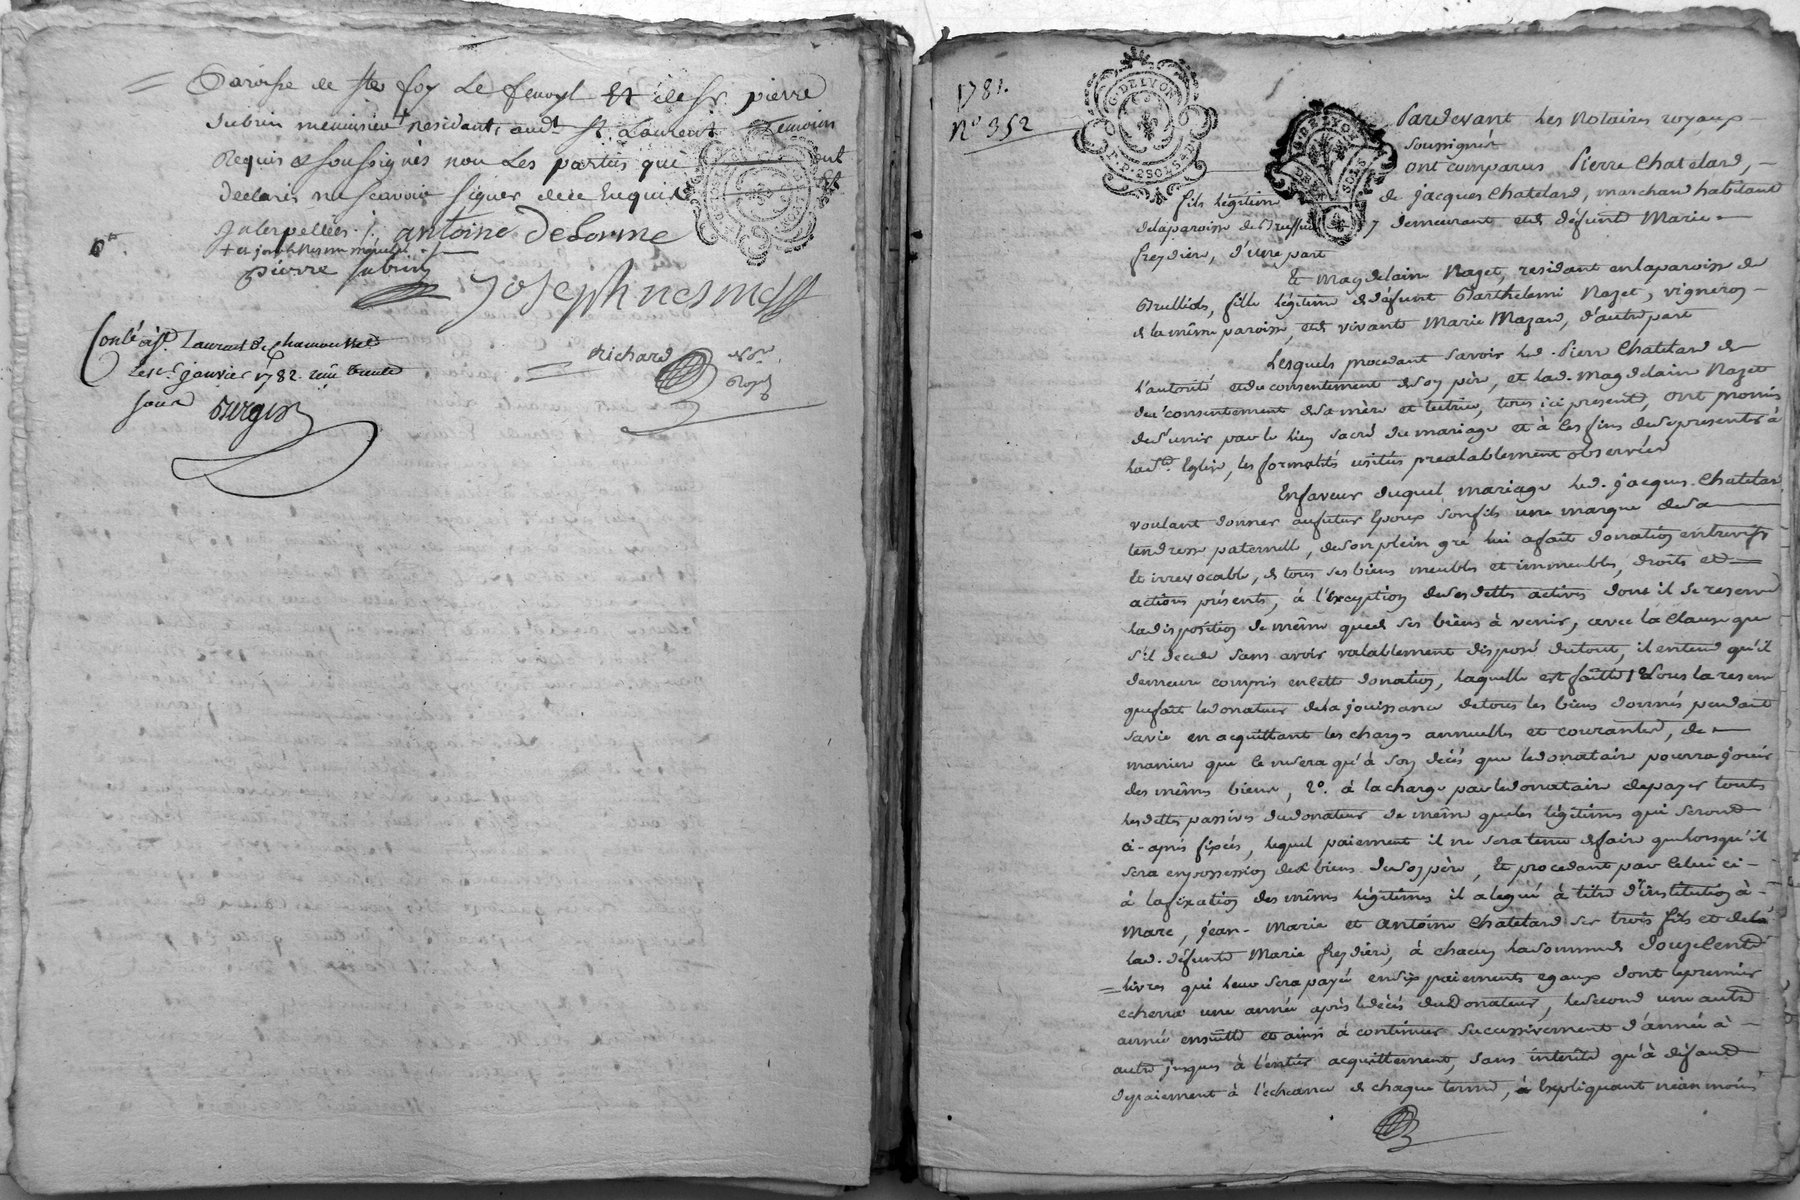 Paroisse de Ste foy Le
pierre
Subrin menuisier residant, aud. St. Laurent Temoins
Requis & soussignés non Les parties qui ont
declaré ne scavoir signer de ce Enquis &
Interpellées
antoine Delorme
pierre subrin
Joseph
Laurent de chamousset
Le janvier 1782. reçu trente
sous
richard
Not.re
Royal
1781.
N.o 352
G. DE LYON
Pardevant Les Notaires royaux
soussignés
ont comparus Pierre Chatelard,
fils légitime de jacques Chatelard, marchand habitant
de la paroisse de y demeurant et de défunte Marie
freydiere, d'une part
Et Magdelaine Nazet, residant en la paroisse de
Brullioles, fille légitime de défunt Barthelemi Nazet, vigneron
de la même paroisse, et de vivante Marie Mazard, d'autre part
Lesquels procedant savoir led. Pierre Chatelard de
l'autorité et du consentement de son père, et lad. Magdelaine Nazet
du consentement de sa mère et tutrice, tous ici presents, ont promis
de s'unir par le lien sacré du mariage et à ces fins de se presenter à
la ste. Eglise, les formalités usitées prealablement observées
En faveur duquel mariage led. jacques Chatelard
voulant donner au futur Epoux son fils une marque de sa
tendresse paternelle, de son plein gré lui a fait donation entrevifs
Et irrevocable, de tous ses biens meubles et immeubles, droits et
actions présents, à l'exception de ses dettes actives dont il se reserve
la disposition de même que de ses biens à venir, avec la Clause que
s'il decede sans avoir valablement disposé du tout, il entend qu'il
demeure compris en cette donation, laquelle est faitte 1.o sous la reserve
que fait le donateur de la jouissance de tous les biens donnés pendant
sa vie en acquittant les charges annuelles et courantes, de
maniere que ce ne sera qu'à son décés que le donataire pourra jouir
des mêmes biens, 2.o à la charge par le donataire de payer toutes
les dettes passives du donateur de même que les légitimes qui seront
ci-après fixées, lequel paiement il ne sera tenu de faire que lorsqu'il
sera en possession des biens de son père, Et procedant par Celui ci
à la fixation des mêmes légitimes il a legué à titre d'institution à
Marc, Jean-Marie et Antoine Chatelard ses trois fils et de la
lad. défunte Marie freydiere, à chacun la somme de douze Cents
livres qui leur sera payée en six paiements egaux dont le premier
echerra une année après le décés du Donateur, le second une autre
année ensuitte et ainsi à continuer successivement d'année à
autre jusques à l'entier acquittement, sans interêts qu'à défaut
de paiement à l'echeance de chaque terme, expliquant néanmoins